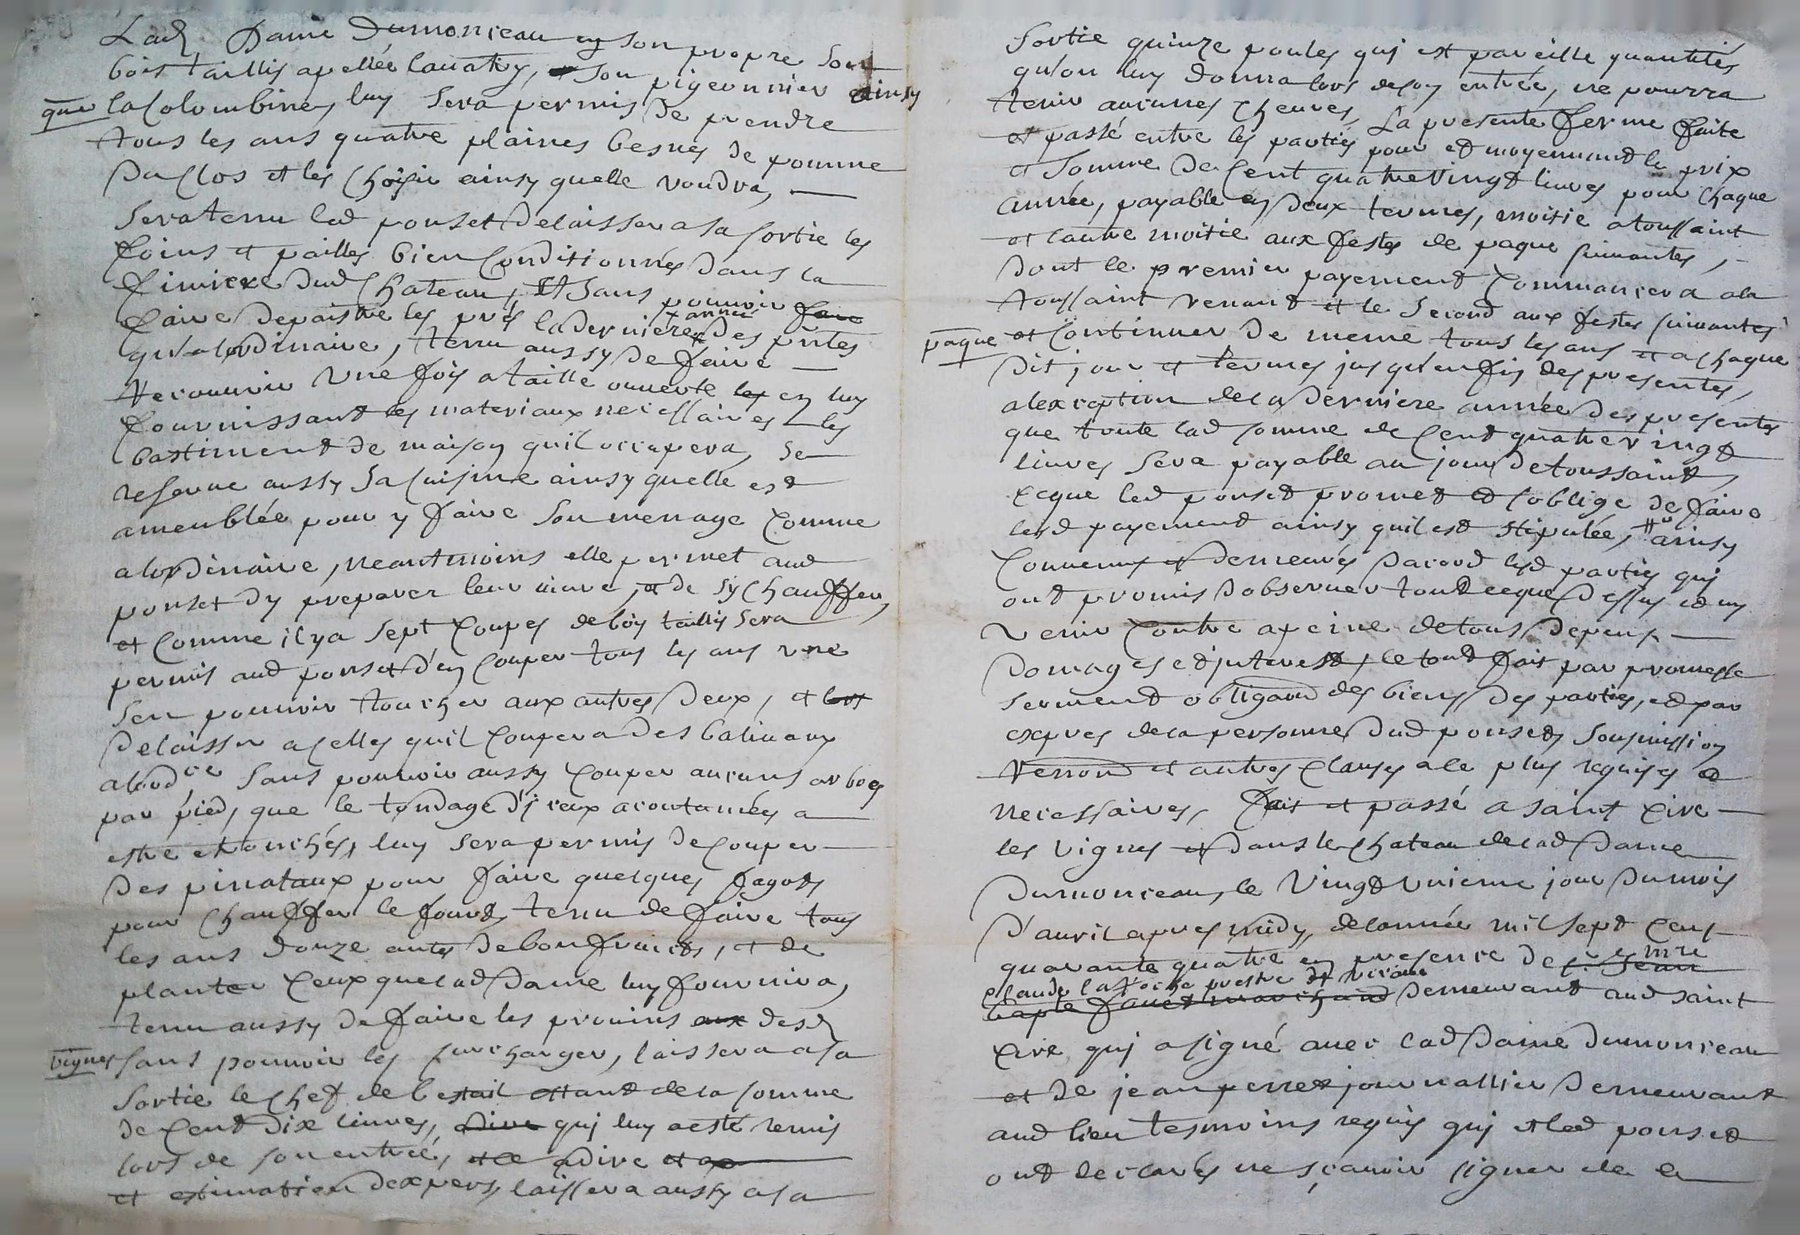 Lad. Dame Dumonceau en son propre son
bois taillis apellée Lauatry, son pigeonnier ainsy
que la Colombine, luy sera permis de prendre
tous les ans quatre plaines besnes de pomme
du Clos et les choisir ainsy quelle voudra,
sera tenu led ponset delaisser a sa sortie les
foins et pailles bien conditionnés dans la
finiere dud Chateau, et sans pouvoir
faire depaistre les prés la derniere année des pntes
qu'alordinaire, tenu aussy de faire
recouurir une fois a taille ouuerte en luy
fournissant les materiaux necessaires les
bastiment de maison quil occupera, se
reserue aussy sa Cuisine ainsy quelle est
ameublée pour y faire son menage comme
a lordinaire, neantmoins elle permet aud
ponset dy preparer leur viure, et de sy chauffer,
et comme il y a sept coupes de bois taillis sera
permis aud ponset d'en couper tous les ans une
sen pouuoir toucher aux autres deux, et
delaisser a celles quil coupera des baliuaux
a lordre sans pouuoir aussy couper aucuns arbres
par pied, que le tondage d'jceux acoutumés a
estre etronchés, luy sera permis de couper
des pinataux pour faire quelques fagots
pour chauffer le fourd, tenu de faire tous
les ans douze antes de bon fruicts, et de
planter ceux que lad Dame luy fournira,
tenu aussy de faire les prouins desd
vignes sans pouuoir les surcharger, laissera a sa
sortie le chef de bestail estant de la somme
de Cent dix liures, qui luy a esté remis
lors de son entrée, a dire
et estimation dexpers, laissera aussy a sa
sortie quinze poules qui est pareille quantités
qu'on luy donna lors de son entrée, ne pourra
tenir aucunes cheures, La presente ferme faite
et passé entre les parties pour et moyennant le prix
et somme de Cent quatre vingt liures pour chaque
année, payable en deux termes, moitie a toussaint
et lautre moitie aux festes de paque suiuantes,
dont le premier payement commancera a la
toussaint venant et le second aux festes suiuantes
paque et continuer de meme tous les ans et a chaque
dit jour et termes jusqu'en fin des presentes,
a lexception de la derniere année des presentes
que toute lad somme de Cent quatre vingt
liures sera payable au jour de toussaint,
ce que led ponset promet et s'oblige de faire
lesd payement ainsy quil est stipulée, ainsy
conuenus et demeurés dacord lesd parties qui
ont promis dobseruer tout ce que dessus et ny
venir contre a peine de tous depens
domages et jnterest, le tout fait par promesse
serment obligaon des biens des parties, et par
expres de la personne dud ponset, soumission
renon et autres clauses a ce plus requises et
necessaires, fait et passé a saint Cire
les vignes et dans le chateau de lad Dame
Dumonceau, le vingt unieme jour du mois
d'auril apres midy, de l'année mil sept cens
quarante quatre en presence de mre
Claude prestre et vicaire
demeurant aud saint
Cire qui a signé auec lad Dame Dumonceau
et de jean perret journallier demeurant
aud lieu tesmoins requis qui et led ponset
ont declarés ne sçauoir signer de ce